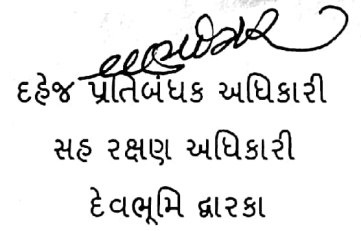 દહેજ પ્રતિબંધક અધિકારી
સહ રક્ષણ અધિકારી
દેવભૂમિ દ્વારકા